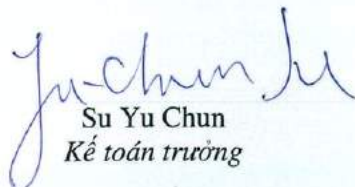 Yu-Chun Su
Su Yu Chun
Kế toán trưởng